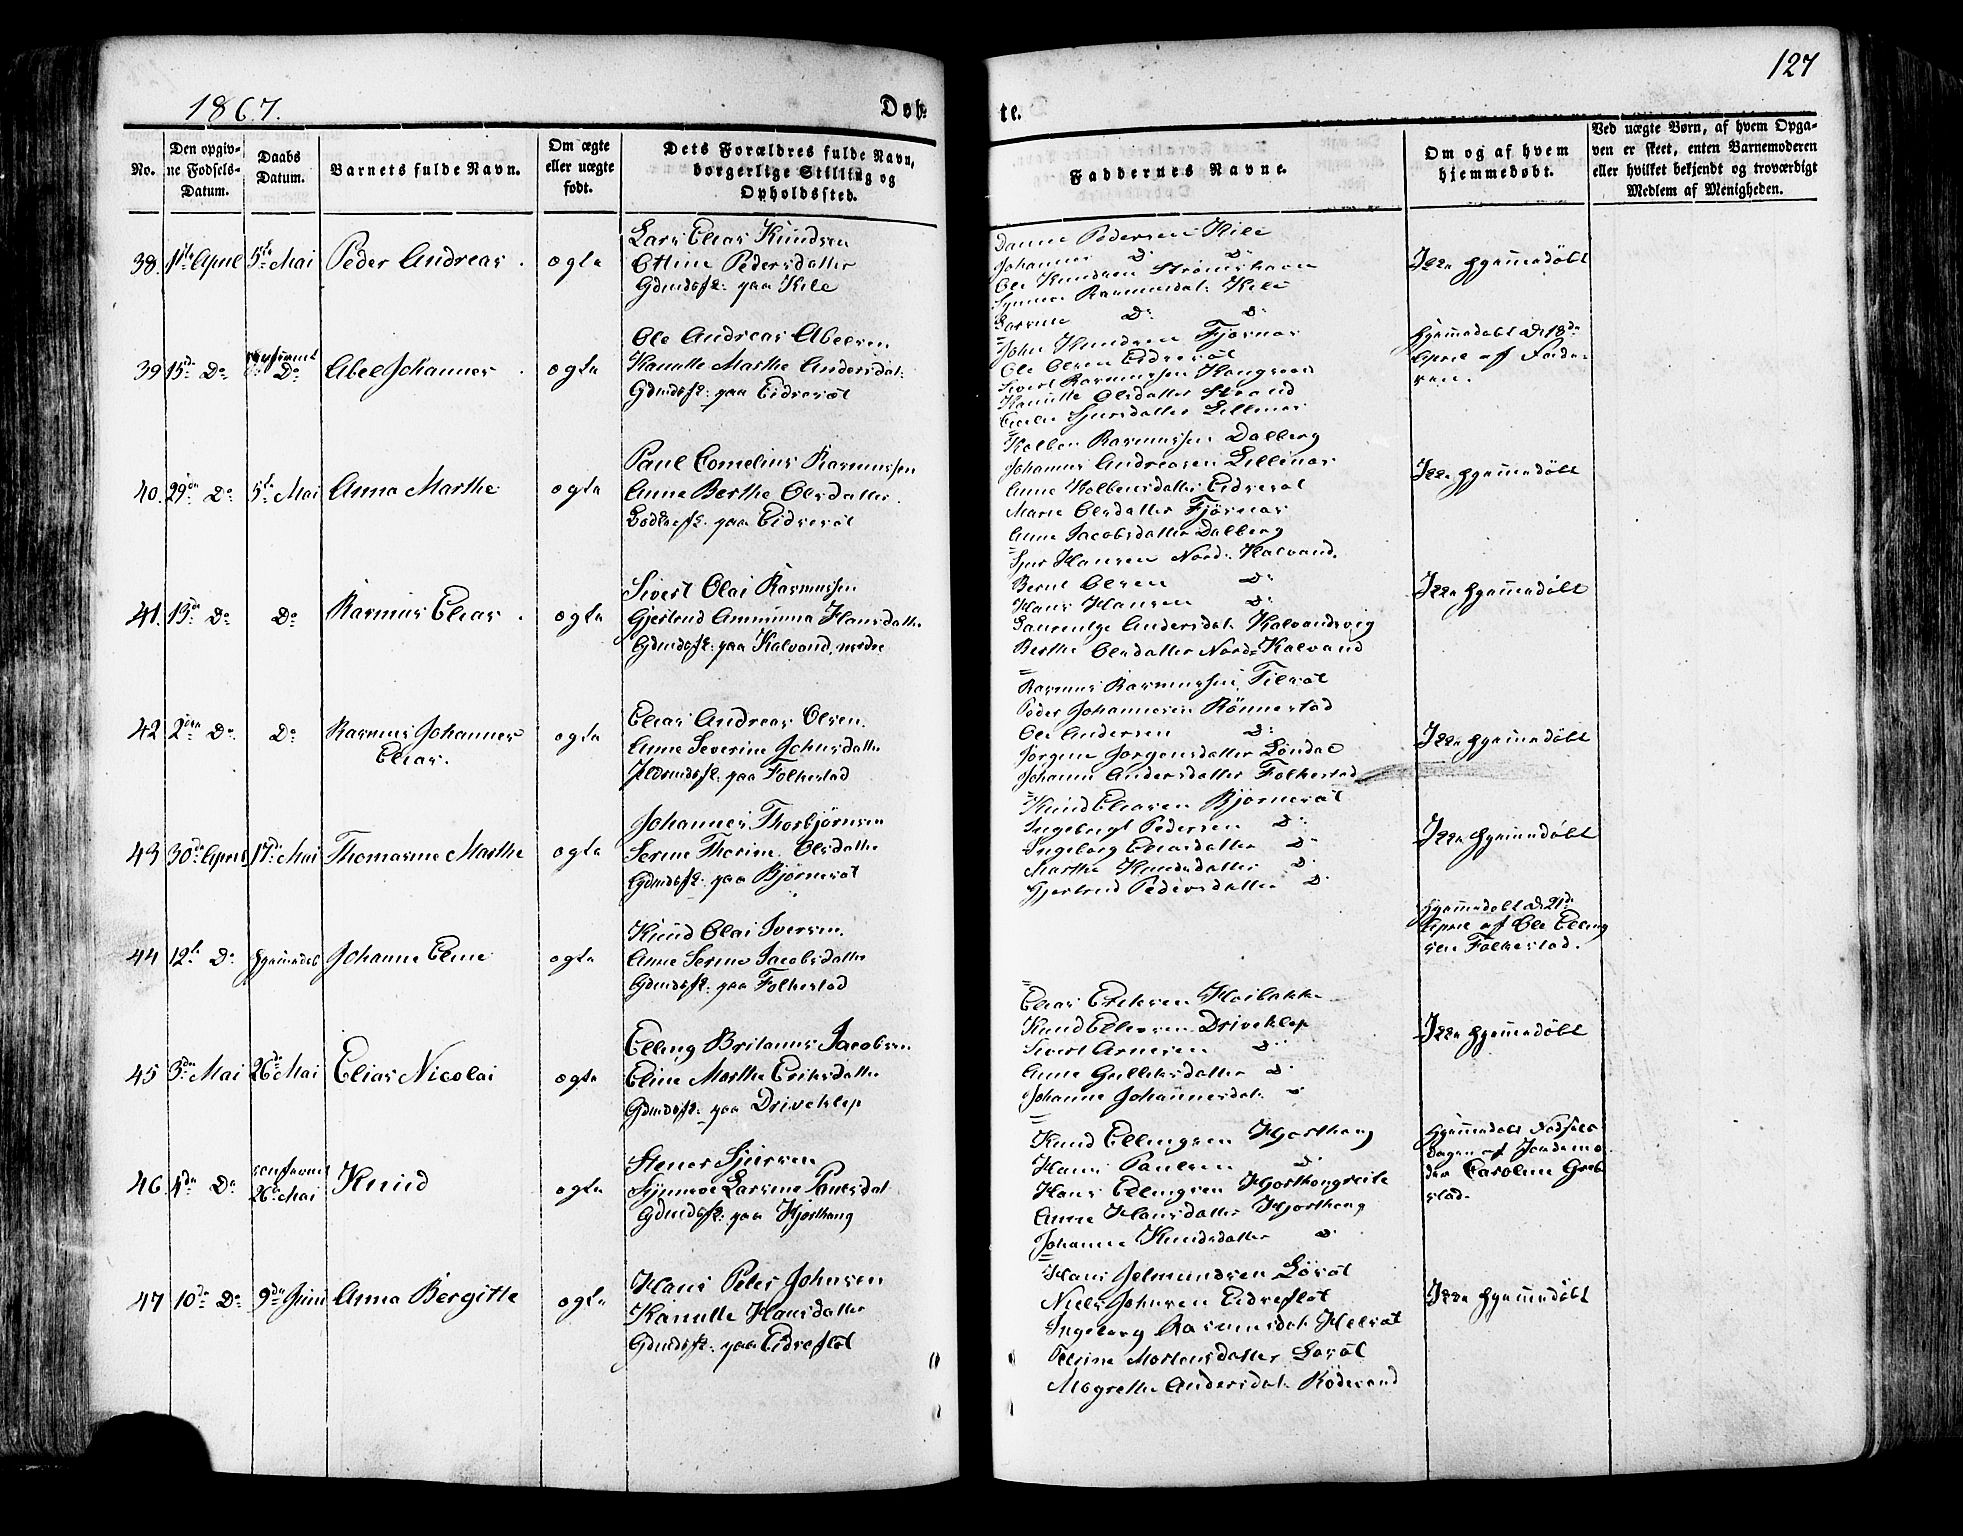 127
1867.
Døb-
te.
No.
Den opgiv-
ne Fødsels-
Datum.
Daabs
Datum.
Barnets fulde Navn.
Om ægte
eller uægte
født.
Dets Forældres fulde Navn,
borgerlige Stilling og
Opholdssted.
Faddernes Navne.
Om og af hvem
hjemmedøbt.
Ved uægte Børn, af hvem Opga-
ven er skeet, enten Barnemoderen
eller hvilket bekjendt og troværdigt
Medlem af Menigheden.
38. April 5te Mai Peder Andreas. ægte
Lars Elias Knudsen
Oline Pedersdatter
Gdmdsfk: paa Kile
Danne Pedersen Kile
Johannes D: D:
Ole Knudsen Strømshavn
Synner Rasmusdat: Kile
D: D:
Ikke hjemmedøbt
39 15de Do D: Abel Johannes. ægte
Ole Andreas Abelsen
Marthe Andersdat:
Gdmdsfk: paa Eidsesæt
John Knudsen Fjørnæs
Ole Olsen Eidsesæt
Sivert Rasmussen
Olsdatter Strand
Sjursdatter Lillenæs
hjemmedøbt d 18de
April af Jorde-
40. 29de Do 5te Mai Anna Marthe ægte
Paul Cornelius Rasmussen
Anne Berthe Olsdatter.
paa Eidsesæt
Kolben Rasmussen Dalberg
Johannes Andreasen Lillenæs
Anne Kolbensdatter Eidsesæt
Marie Olsdatter Fjørnæs
Anne Jacobsdatter Dalberg
Ikke hjemmedøbt
41. 13de Do Do Rasmus Elias. ægte
Sivert Olai Rasmussen
Gjertrud Hansdatter
Gdmdsfk: paa Kalvand, nordre
Sjur Hansen Nord: Kalvand.
Bernt Olsen D:
Hans Hansen D:
Andersdat: Kalvandsvig
Berthe Olsdatter Nord: Kalvand
Ikke hjemmedøbt
42 2den Do Do Rasmus Johannes
Elias.
ægte
Elias Andreas Olsen.
Anne Severine Johnsdatter
paa Folkestad
Rasmus Rasmussen
Peder Johannesen Rønnestad
Ole Andersen D:
Jørgine Jørgensdatter Løndal
Johanne Andersdatter Folkestad
Ikke hjemmedøbt
43 30de April 17de Mai Thomasine Marthe ægte
Johannes Thorbjørnsen
Serine Thorine Olsdatter
Gdmdsfk: paa Bjørnesæt
Knud Eliasen Bjørnesæt
Ingebrigt Pedersen D:
Ingeborg Eliasdatter D
Marthe Knudsdatter D
Gjertrud Pedersdatter D
Ikke hjemmedøbt
44 12te Do hjemmedøb Johanne Eline ægte
Knud Olai Iversen.
Anne Serine Jacobsdatter
Gdmdsfk: paa Folkestad
hjemmedøbt d 21de
April af Ole Elling
sen Folkestad.
45 3die Mai 26de Mai Elias Nicolai ægte
Elling Jacobsen
Eline Marthe Eriksdatter
Gdmdsfk: paa Driveklep
Elias Eriksen
Knud Eliasen Driveklep
Sivert Arnesen D:
Anne Gulleksdatter D
Johanne Johannesdat: D
Ikke hjemmedøbt
46. 4de Do 26de Mai Knud ægte
Stener Sjursen
Synnøve Larsine Paulsdat:
Gdmdsfk: paa Hjorthaug
Knud Ellingsen Hjorthaug
Hans Paulsen D:
Hans Ellingsen
Anne Hansdatter Hjorthaug
Johanne Knudsdatter D
hjemmedøbt Fødsels-
dagen af Jordemo-
der Caroline
47 10de Do 9de Juni Anna Bergitte ægte
Hans Peter Johnsen
Hansdatter
Gdmdsfk: paa Eidseflot
Hans Løsæt
Niels Johnsen Eidseflot
Ingeborg Rasmusdat: Helsæt
Mortensdatter Løsæt
Magrethe Andersdat:
Ikke hjemmedøbt